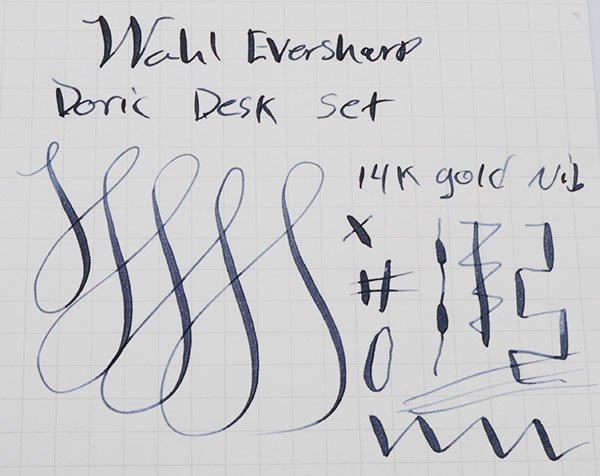 Wahl Eversharp
Doric Desk Set
14K gold Nib
X
#
O